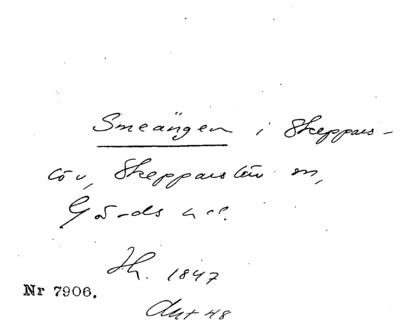 Smeängen i Skeppars-
löv, Skepparslöv sn,
Gärds hd.
Jh. 1847
Nr 7906.
Akt 48